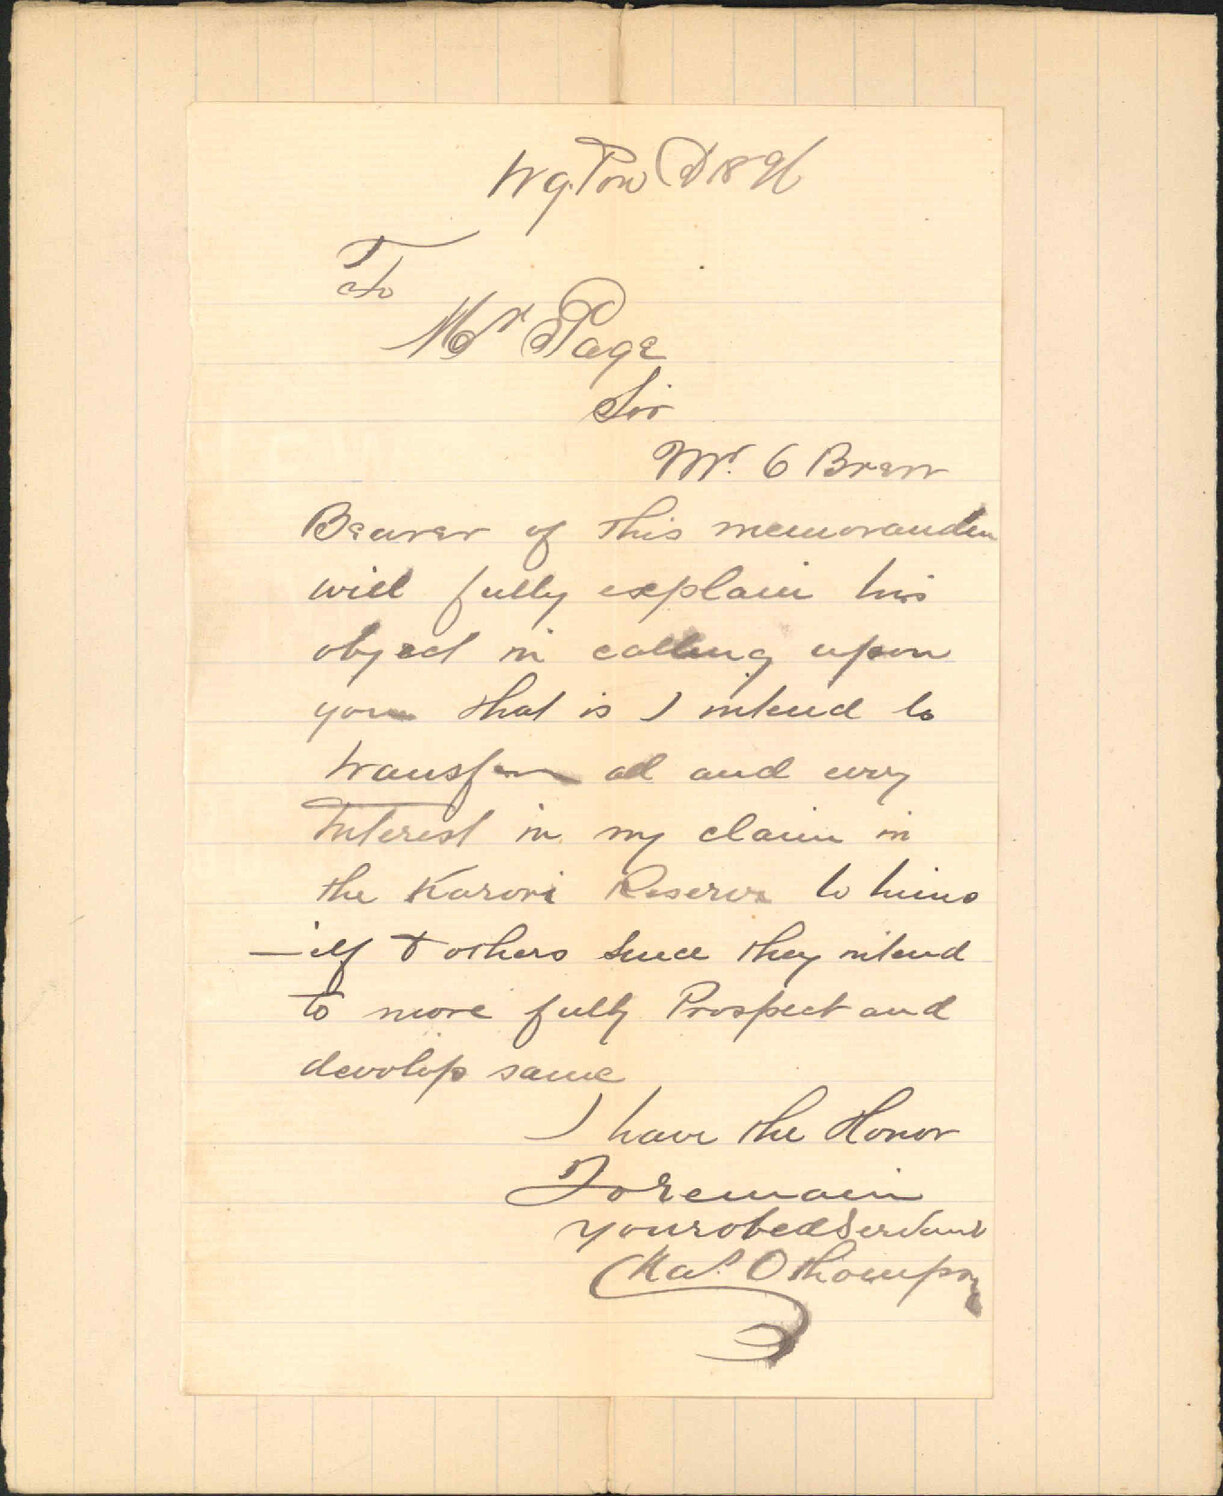 Wg.Ton D 1896
To
Mr Page
Sir
Mr. C Brem
Bearer of this memorandum
will fully explain his
object in calling upon
you that is I intend to
transfer all and every
Interest in my claim in
the Karori Reserve to hims
—elf & others Since they intend
to more fully Prospect and
devolop same
I have the Honor
To remain
your obed Servant
Chas. O Thompson